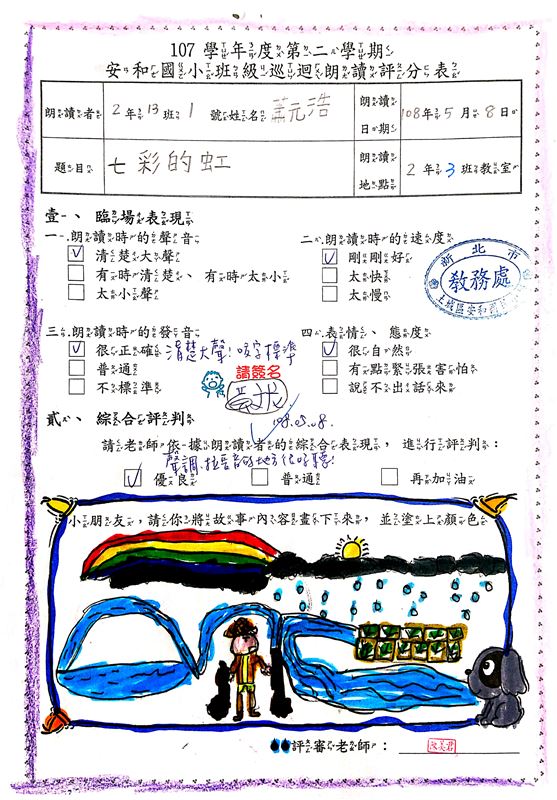 107 學年度第二學期
安和國小班級巡迴朗讀評分表
朗讀者 2年13班1號姓名 蕭元浩 朗讀日期 108年5月8日
題目 七彩的虹 朗讀地點 2年3班教室
壹、臨場表現
一、朗讀時的聲音 二、朗讀時的速度
清楚大聲 剛剛好
有時清楚、有時太小 太快
太小聲 太慢
新北市
教務處
土城區安和國
三、朗讀時的發音 四、表情、態度
很正確 清楚大聲!咬字標準 很自然
普通 有點緊張害怕
不標準 說不出話來
請簽名
108.05.08.
貳、綜合評判
請老師依據朗讀者的綜合表現,進行評判:
聲調、拉長音的地方很好聽!
優良 普通 再加油
小朋友,請你將故事內容畫下來,並塗上顏色
評審老師: